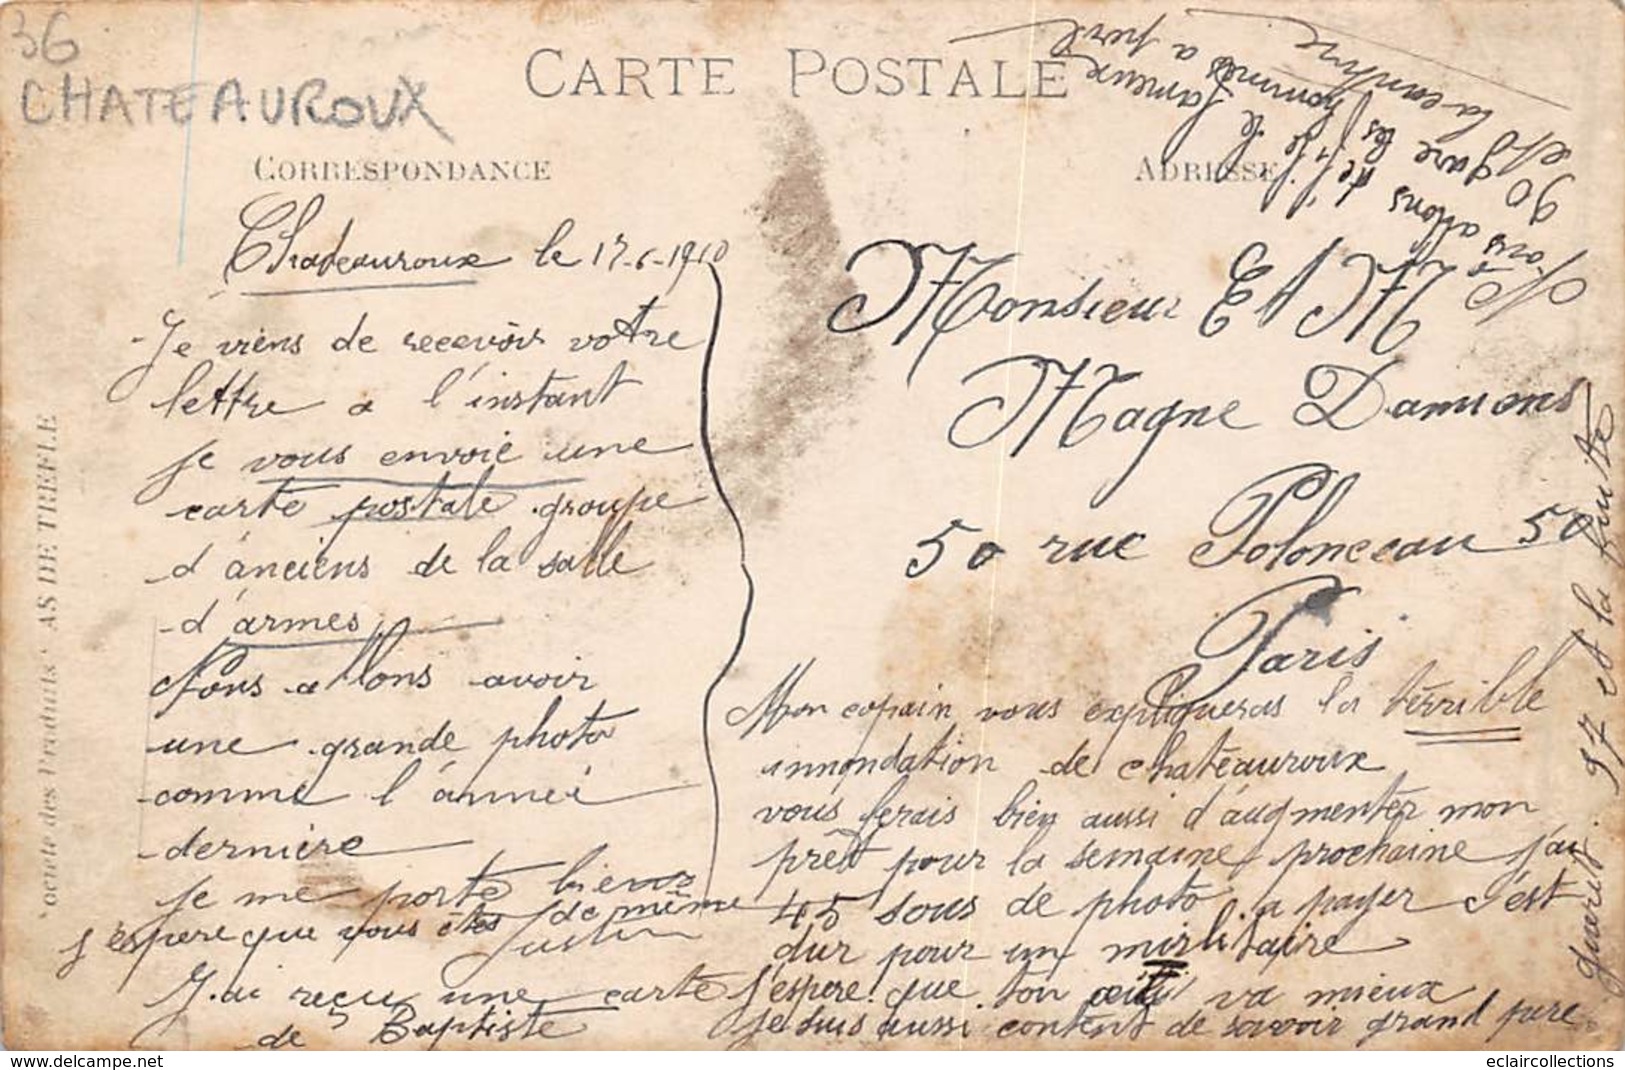 36
CHATEAUROUX
CARTE POSTALE
CORRESPONDANCE
ADRESSE
AS DE TREFLE
Chateauroux le 17-6-1910
Je viens de recevoir votre
lettre a l'instant
je vous envoie une
carte postale groupe
d'anciens de la salle
d'armes
Nous allons avoir
une grande photo
comme l'année
dernière
je me porte bien
j'espere que vous êtes de même
Justin
J'ai reçu une carte
de Baptiste
Monsieur Et M
Magne Damiens
50 rue Polonceau 50
Paris
Mon copain vous expliqueras la terrible
innondation de chateauroux
vous ferais bien aussi d'augmenter mon
prêt pour la semaine prochaine j'ai
45 sous de photo a payer c'est
dur pour un mirlitaire
j'espere que ton va mieux
je suis aussi content de savoir grand pere
et la suite
Nous allons de le fameux
90 gare les hommes a